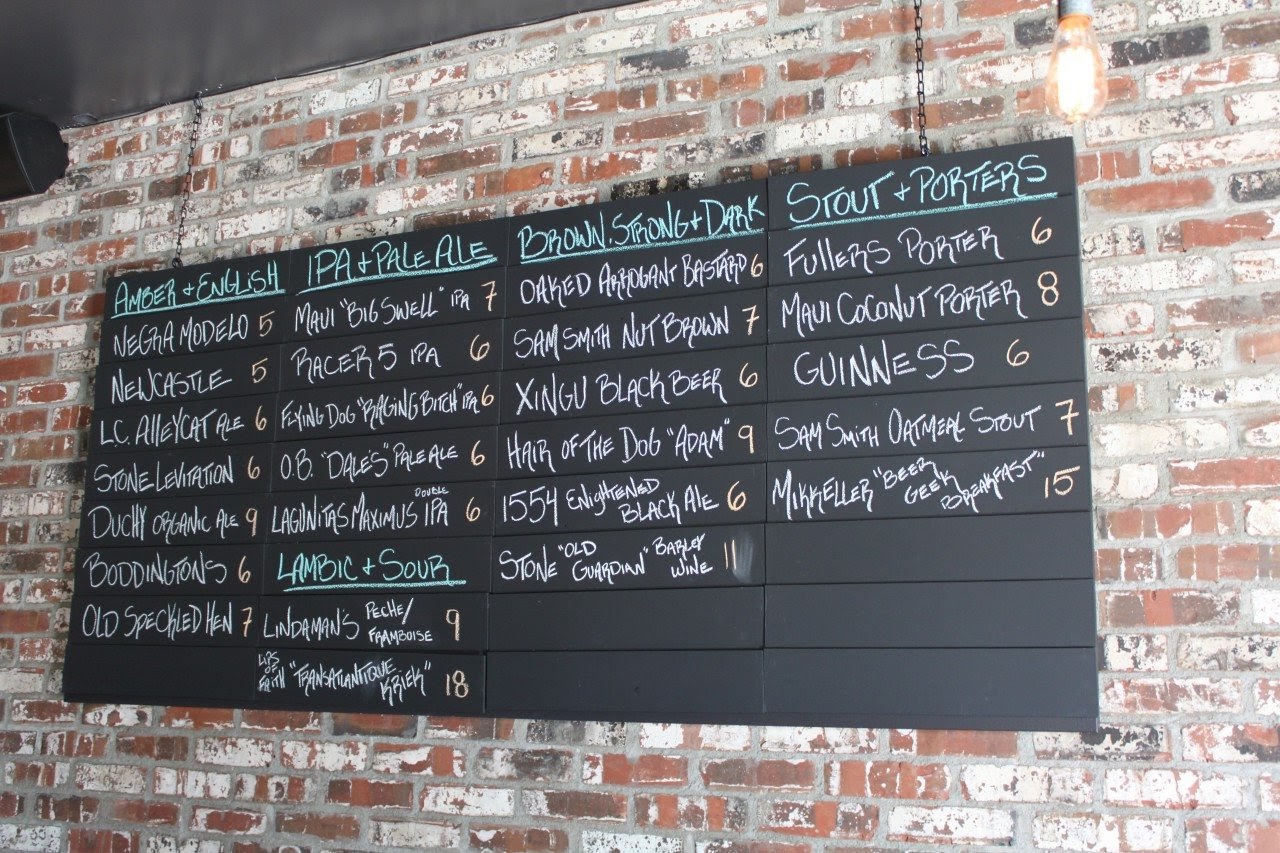 AMBER + ENGLISH
NEGRA MODELO 5
NEWCASTLE 5
LC. ALLEYCAT ALE 6
STONE LEVITATION 6
DUCHY ORGANIC ALE 9
BODDINGTONS 6
OLD SPECKLED HEN 7
IPA + PALE ALE
MAUI "BIG SWELL" IPA 7
RACER 5 IPA 6
FLYING DOG "RAGING BITCH" IPA 6
O.B. "DALE'S" PALE ALE 6
LAGUNITAS MAXIMUS DOUBLE IPA 6
LAMBIC + SOUR
LINDAMAN'S PECHE/ FRAMBOISE 9
LIPS OF FAITH "TRANSATLANTIQUE KRIEK" 18
BROWN, STRONG + DARK
OAKED ARROGANT BASTARD 6
SAM SMITH NUT BROWN 7
XINGU BLACK BEER 6
HAIR OF THE DOG "ADAM" 9
1554 ENIGHTENED BLACK ALE 6
STONE "OLD GUARDIAN" BARLEY WINE 11
STOUT + PORTERS
FULLERS PORTER 6
MAUI COCONUT PORTER 8
GUINNESS 6
SAM SMITH OATMEAL STOUT 7
MIKKELLER "BEER GEEK BREAKFAST" 15